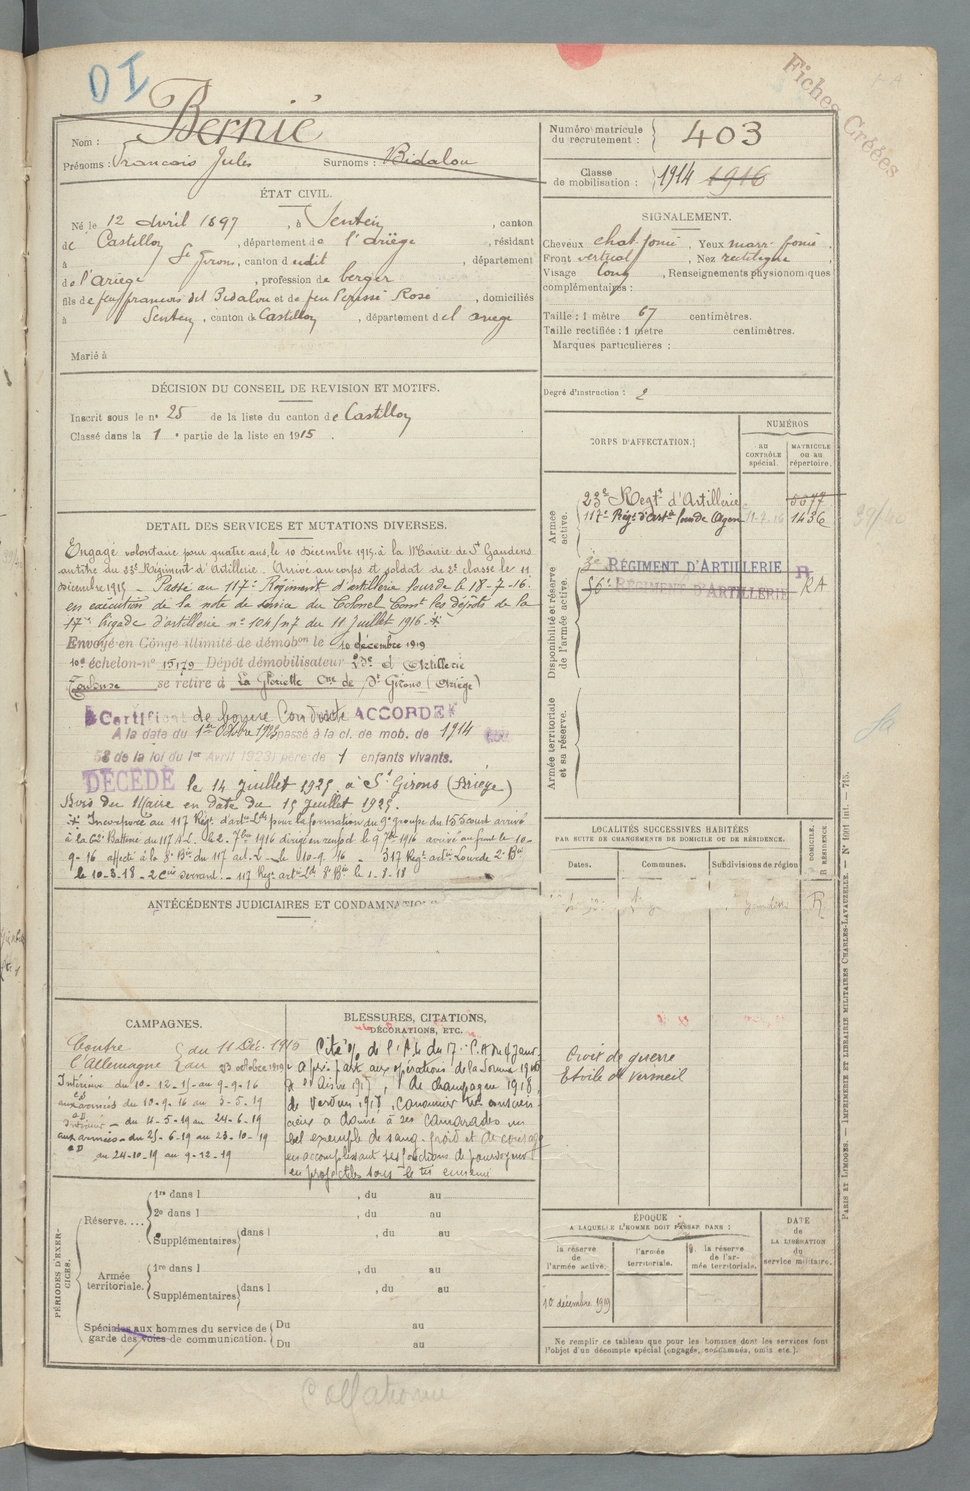 DI
Fiches Créées
Nom : Bernié
Prénoms : Francois Jules Surnoms : Bidalou
Numéro matricule du recrutement : 403
Classe de mobilisation : 1914 1916
ÉTAT CIVIL.
Né le 12 Avril 1897, à Sentein, canton
de Castillon, département de l'ariège, résidant
à St Girons, canton dudit, département
de l'ariège, profession de berger
fils de feu francois dit Bidalou et de feu Rose, domiciliés
à Sentein, canton de Castillon, département de l'ariege
Marié à
SIGNALEMENT.
Cheveux chat. foncé, Yeux marr. foncé,
Front vertical, Nez rectiligne,
Visage long, Renseignements physionomiques
complémentaires :
Taille : 1 mètre 67 centimètres.
Taille rectifiée : 1 mètre centimètres.
Marques particulières :
DÉCISION DU CONSEIL DE REVISION ET MOTIFS.
Inscrit sous le n° 25 de la liste du canton de Castillon
Classé dans la 1e partie de la liste en 1915.
Degré d'instruction : 2
CORPS D'AFFECTATION.
NUMÉROS
AU CONTRÔLE spécial.
MATRICULE ou au répertoire.
Armée active.
23e Regt d'Artillerie
117e Régt d'Artie lourde Agen 1436
Disponibilité et réserve de l'armée active.
3e RÉGIMENT D'ARTILLERIE R
56e RÉGIMENT D'ARTILLERIE RA
Armée territoriale et sa réserve.
DETAIL DES SERVICES ET MUTATIONS DIVERSES.
Engagé volontaire pour quatre ans, le 10 Décembre 1915 à la Mairie de St Gaudens
au titre du 23e Régiment d'Artillerie. Arrivé au corps et soldat de 2e classe le 11
Décembre 1915. Passé au 117e Régiment d'artillerie lourde le 18-7-16
en exécution de la note de service du Colonel Comt les dépôts de la
17e brigade d'artillerie n° 104/n7 du 11 juillet 1916. *
Envoyé en Congé illimité de démobon le 10 décembre 1919
10e échelon n° 15179 Dépôt démobilisateur d'Artillerie
Toulouse se retire à La Gloriette Cne de St Girons (Ariège)
Certificat de bonne Conduite ACCORDÉ
A la date du 1er Octobre 1923 passé à la cl. de mob. de 1914
58 de la loi du 1er Avril 1923) père de 1 enfants vivants.
DÉCÉDÉ le 14 Juillet 1925 à St Girons (Ariège)
Avis du Maire en date du 15 Juillet 1925.
* Incorporé au 117 Régt d'artie Lde pour la formation du 9e groupe du 155 court arrivé
à la 62e Batterie du 117 A.L. le 2-7bre 1916 dirigé en renfort le 9 7bre 1916 arrivé au front le 10-
9-16 affecté à la 8e Bie du 117 art. L. le 10-9-16 - 317 Régt artie Lourde 2e Bie
le 10-3-18 - 2 cne servant - 117 Regt artie Lde 8e Bie le 1-8-18
LOCALITÉS SUCCESSIVES HABITÉES
PAR SUITE DE CHANGEMENTS DE DOMICILE OU DE RÉSIDENCE.
Dates. Communes. Subdivisions de région
DOMICILE. R RÉSIDENCE
R
ANTÉCÉDENTS JUDICIAIRES ET CONDAMNATIONS
CAMPAGNES.
Contre l'Allemagne du 11 Déc. 1915
au 23 octobre 1919
Intérieur du 10-12-15 au 9-9-16
aux armées du 10-9-16 au 3-5-19
Intérieur - du 4-5-19 au 24-6-19
aux armées - du 25-6-19 au 23-10-19
du 24-10-19 au 9-12-19
BLESSURES, CITATIONS,
DÉCORATIONS, ETC.
Cité
a pris part aux opérations de la Somme 1916
de l'Aisne 1917, de champagne 1918,
de verdun 1918, canonnier très conscien-
cieux a donné à ses camarades un
bel exemple de sang-froid et de courage
en accomplissant ses fonctions de pourvoyeur
en projectiles sous le tir ennemi
Croix de guerre
Etoile de Vermeil
PÉRIODES D'EXERCICES.
Réserve....
1re dans l , du au
2e dans l , du au
Supplémentaires dans l , du au
Armée territoriale.
1re dans l , du au
Supplémentaires dans l , du au
Spéciales aux hommes du service de garde des voies de communication.
Du au
Du au
ÉPOQUE
A LAQUELLE L'HOMME DOIT PASSER DANS :
la réserve de l'armée active.
l'armée territoriale.
la réserve de l'armée territoriale.
DATE de LA LIBÉRATION du service militaire.
10 décembre 1919
Ne remplir ce tableau que pour les hommes dont les services font
l'objet d'un décompte spécial (engagés, condamnés, omis etc.).
PARIS ET LIMOGES. — IMPRIMERIE ET LIBRAIRIE MILITAIRES CHARLES-LAVAUZELLE.
Collationné